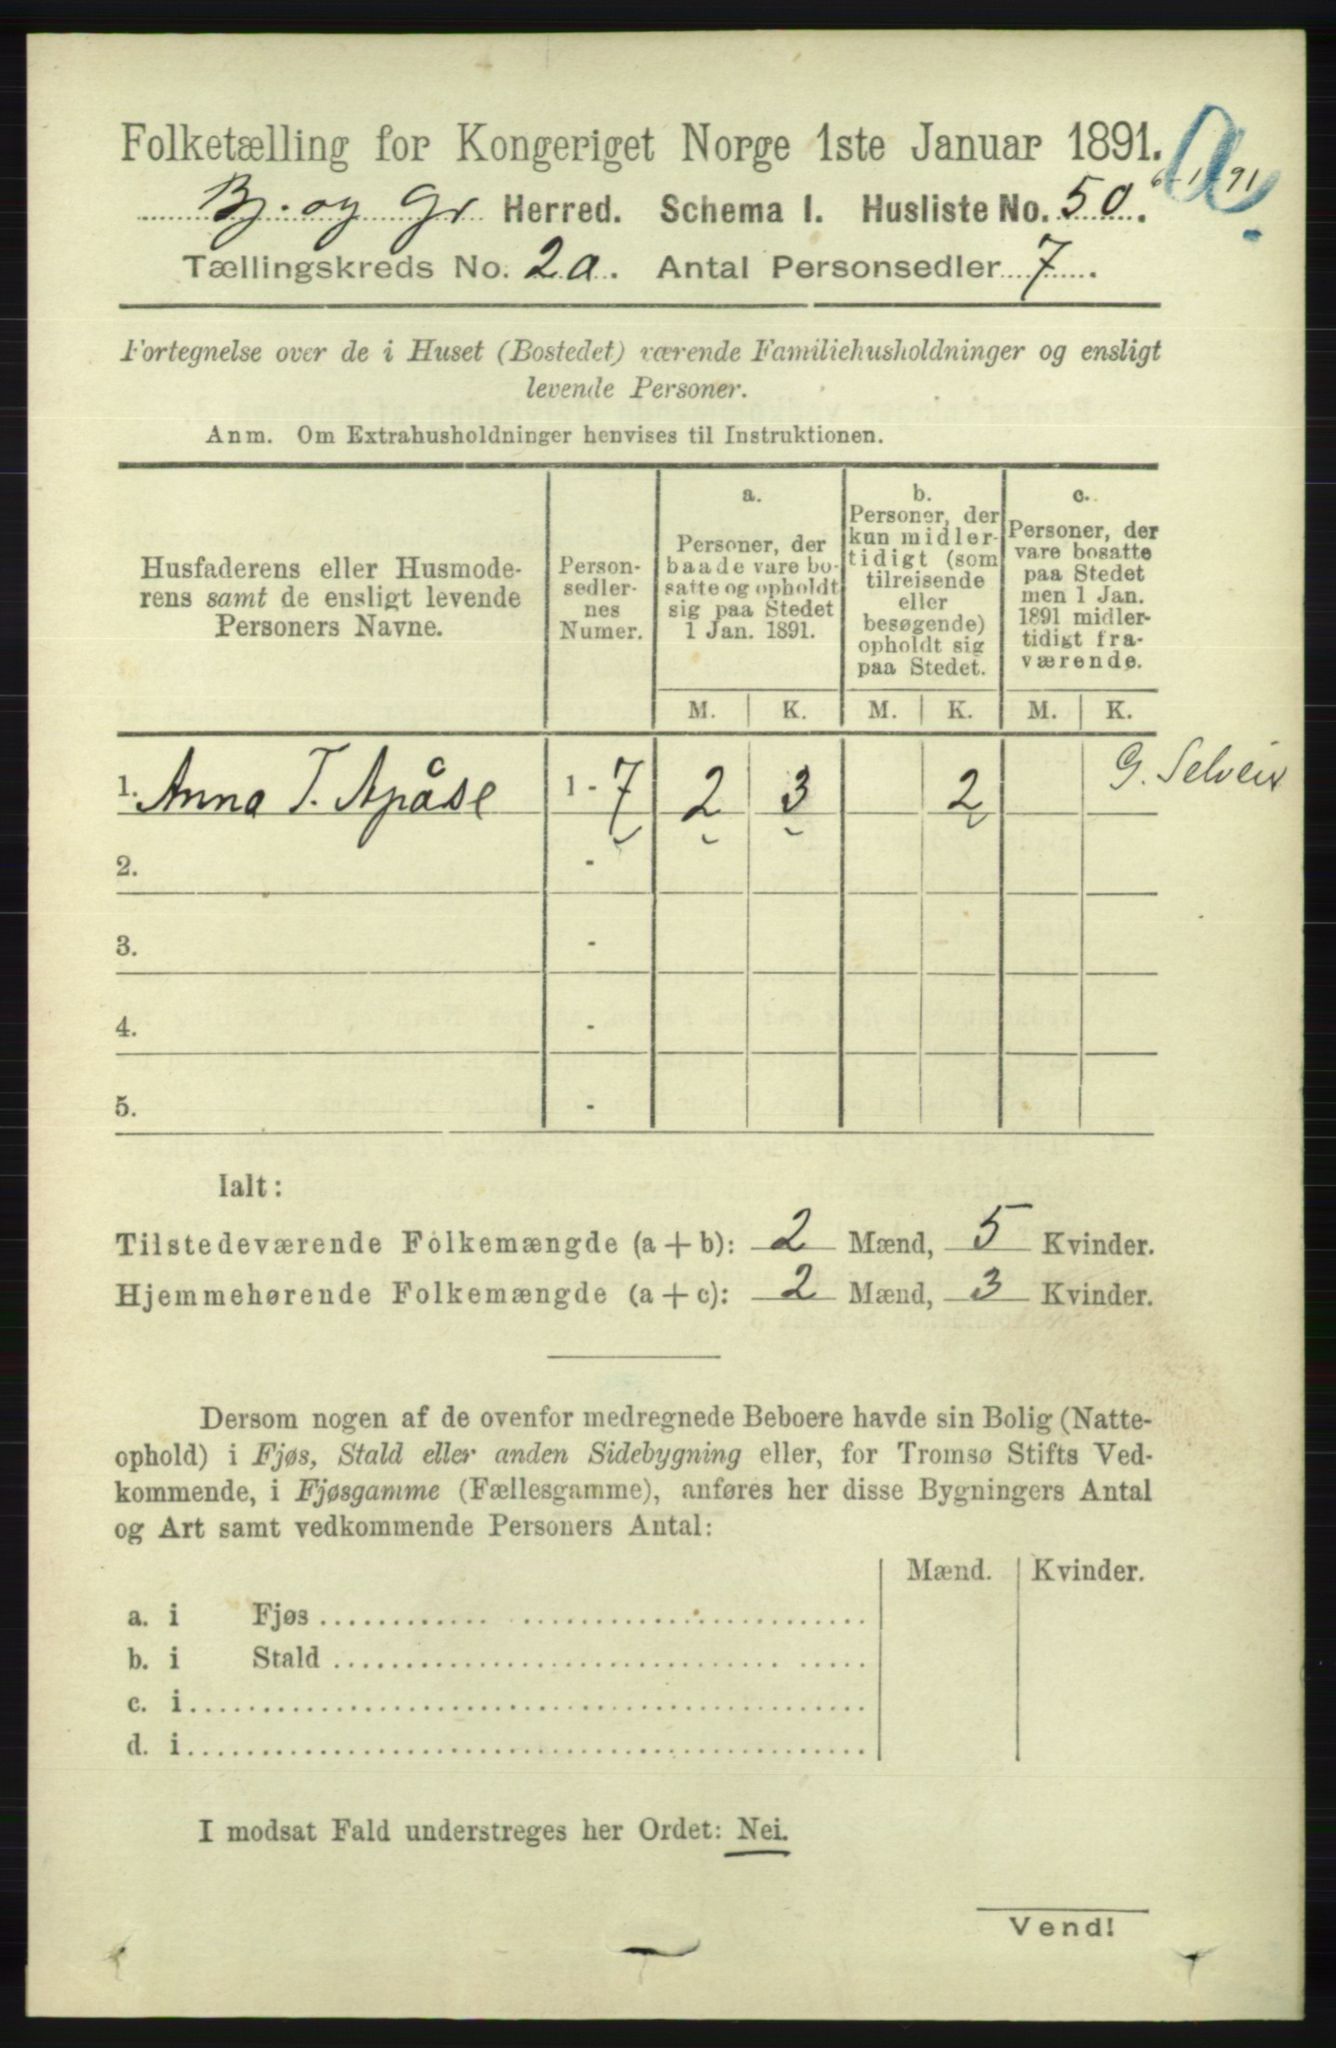 Folketælling for Kongeriget Norge 1ste Januar 1891.
6-1-91
Bj. og Gr Herred. Schema I. Husliste No. 50.
Tællingskreds No. 2a. Antal Personsedler 7.
Fortegnelse over de i Huset (Bostedet) værende Familiehusholdninger og ensligt
levende Personer.
Anm. Om Extrahusholdninger henvises til Instruktionen.
Husfaderens eller Husmode-
rens samt de ensligt levende
Personers Navne.
Person-
sedler-
nes
Numer.
a.
Personer, der
baade vare bo-
satte og opholdt
sig paa Stedet
1 Jan. 1891.
b.
Personer, der
kun midler-
tidigt (som
tilreisende
eller
besøgende)
opholdt sig
paa Stedet.
c.
Personer, der
vare bosatte
paa Stedet
men 1 Jan.
1891 midler-
tidigt fra-
værende.
M. K. M. K. M. K.
1. Anna T. Apåse 1 - 7 2 3 2 G. Selveier
2. -
3. -
4. -
5. -
Ialt:
Tilstedeværende Folkemængde (a + b): 2 Mænd, 5 Kvinder.
Hjemmehørende Folkemængde (a + c): 2 Mænd, 3 Kvinder.
Dersom nogen af de ovenfor medregnede Beboere havde sin Bolig (Natte-
ophold) i Fjøs, Stald eller anden Sidebygning eller, for Tromsø Stifts Ved-
kommende, i Fjøsgamme (Fællesgamme), anføres her disse Bygningers Antal
og Art samt vedkommende Personers Antal:
Mænd. Kvinder.
a. i Fjøs
b. i Stald
c. i
d. i
I modsat Fald understreges her Ordet: Nei.
Vend!